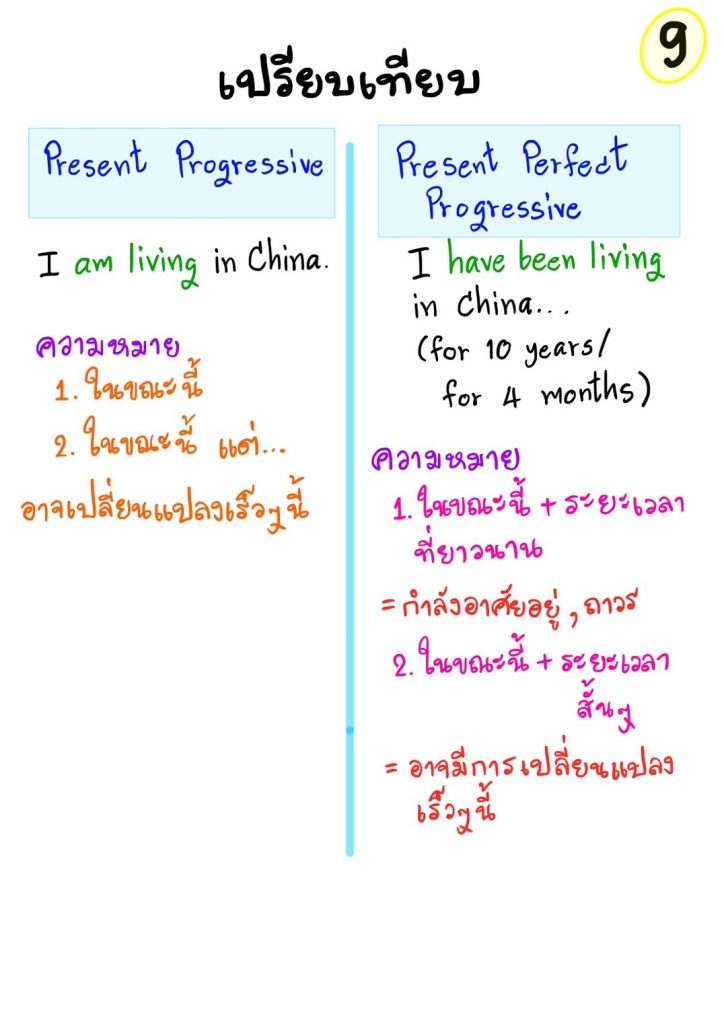 9
เปรียบเทียบ
Present Progressive
I am living in China.
ความหมาย
1. ในขณะนี้
2. ในขณะนี้ แต่...
อาจเปลี่ยนแปลงเร็วๆนี้
Present Perfect
Progressive
I have been living
in China...
(for 10 years/
for 4 months)
ความหมาย
1. ในขณะนี้ + ระยะเวลา
ที่ยาวนาน
= กำลังอาศัยอยู่, ถาวร
2. ในขณะนี้ + ระยะเวลา
สั้นๆ
= อาจมีการเปลี่ยนแปลง
เร็วๆนี้